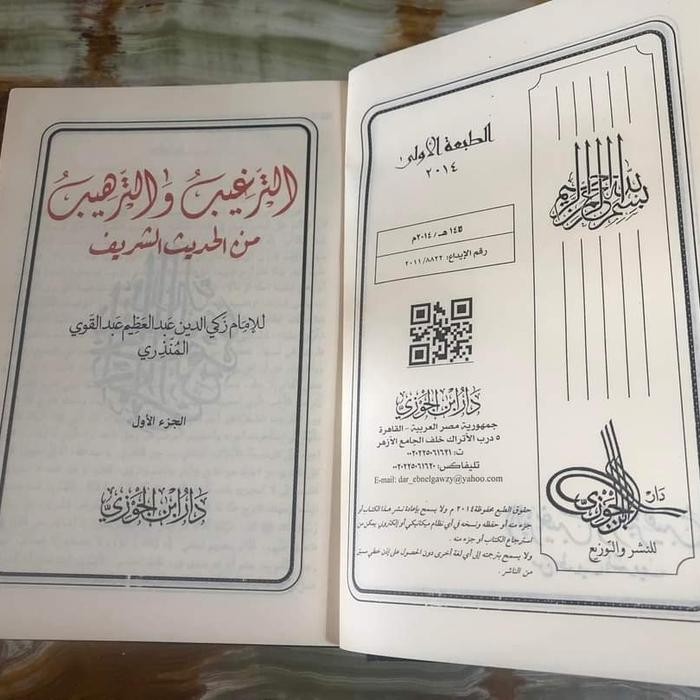 الترغيب والترهيب
من الحديث الشريف
للإمام زكي الدين عبد العظيم عبد القوي
المنذري
الجزء الأول
دار ابن الجوزي
الطبعة الأولى
٢٠١٤
هـ / ٢٠١٤م
رقم الإيداع: ٢٠١١/٨٨٢٢
دار ابن الجوزي
جمهورية مصر العربية - القاهرة
٥ درب الأتراك خلف الجامع الأزهر
ت: ٠٠٢٠٢٢٥٠٦١٦٢١
تليفاكس: ٠٠٢٠٢٢٥٠٦١٦٢٠
E-mail: dar_ebnelgawzy@yahoo.com
حقوق الطبع محفوظة ٢٠١٤ م ولا يسمح بإعادة نشر هذا الكتاب أو
جزء منه أو حفظه ونسخه في أي نظام ميكانيكي أو إلكتروني يمكن من
استرجاع الكتاب أو جزء منه .
ولا يسمح بترجمته إلى أي لغة أخرى دون الحصول على إذن خطي مسبق
من الناشر .
بسم الله الرحمن الرحيم
دار
ابن الجوزي
للنشر والتوزيع